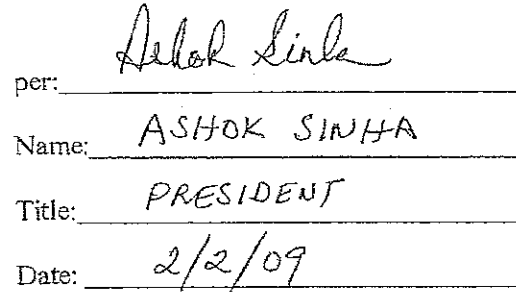 per: Ashok Sinha
Name: ASHOK SINHA
Title: PRESIDENT
Date: 2/2/09